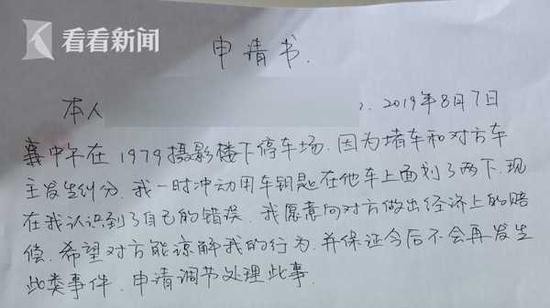 看看新闻
KNEWS
申请书.
本人
, 2019年8月7日
中午在1979摄影楼下停车场.因为堵车和对方车
主发生纠分.我一时冲动用车钥匙在他车上面划了两下.现
在我认识到了自己的错误.我愿意向对方做出经济上的赔
偿.希望对方能谅解我的行为.并保证今后不会再发生
此类事件.申请调节处理此事.